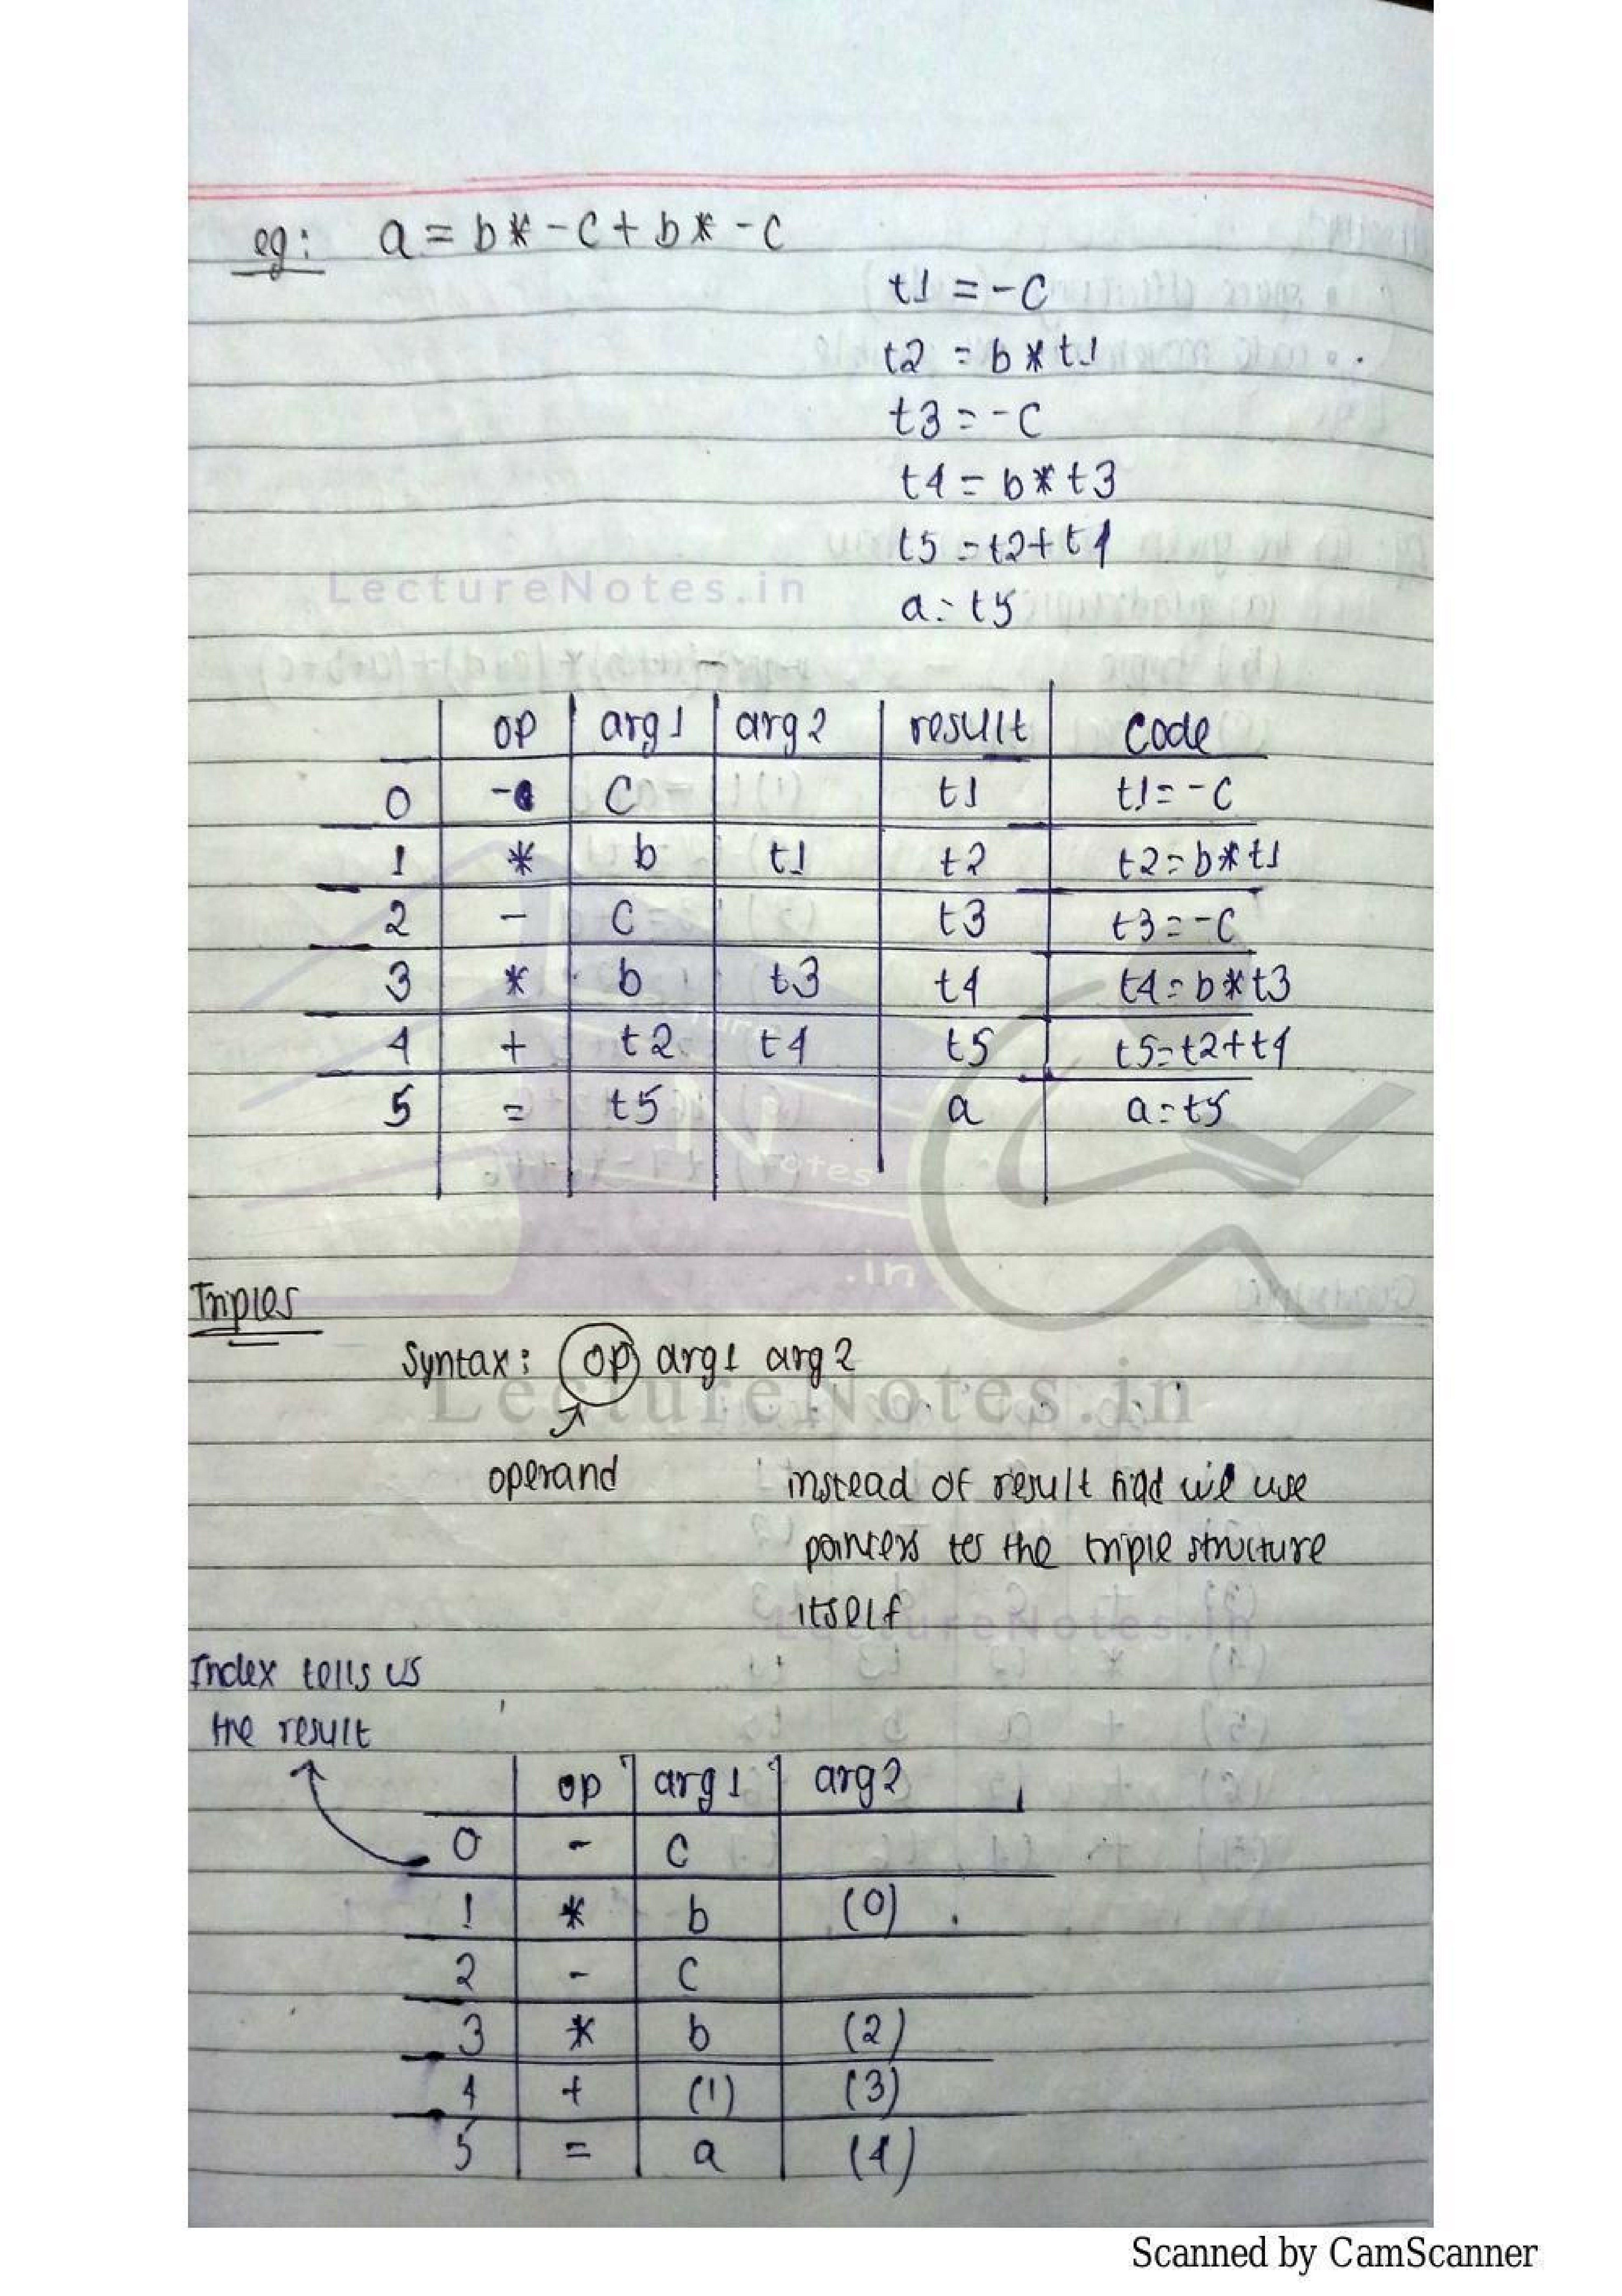 eg: a = b * - c + b * - c
t1 = - c
t2 = b * t1
t3 = - c
t4 = b * t3
t5 = t2 + t4
LectureNotes.in
a = t5
op arg1 arg2 result code
0 - c t1 t1 = - c
1 * b t1 t2 t2 = b * t1
2 - c t3 t3 = - c
3 * b t3 t4 t4 = b * t3
4 + t2 t4 t5 t5 = t2 + t4
5 = t5 a a = t5
Notes
.in
Triples
Syntax: op arg1 arg2
LectureNotes.in
operand
instead of result we use
pointers to the triple structure
itself
LectureNotes.in
Index tells us
the result
op arg1 arg2
0 - c
1 * b (0)
2 - c
3 * b (2)
4 + (1) (3)
5 = a (4)
Scanned by CamScanner